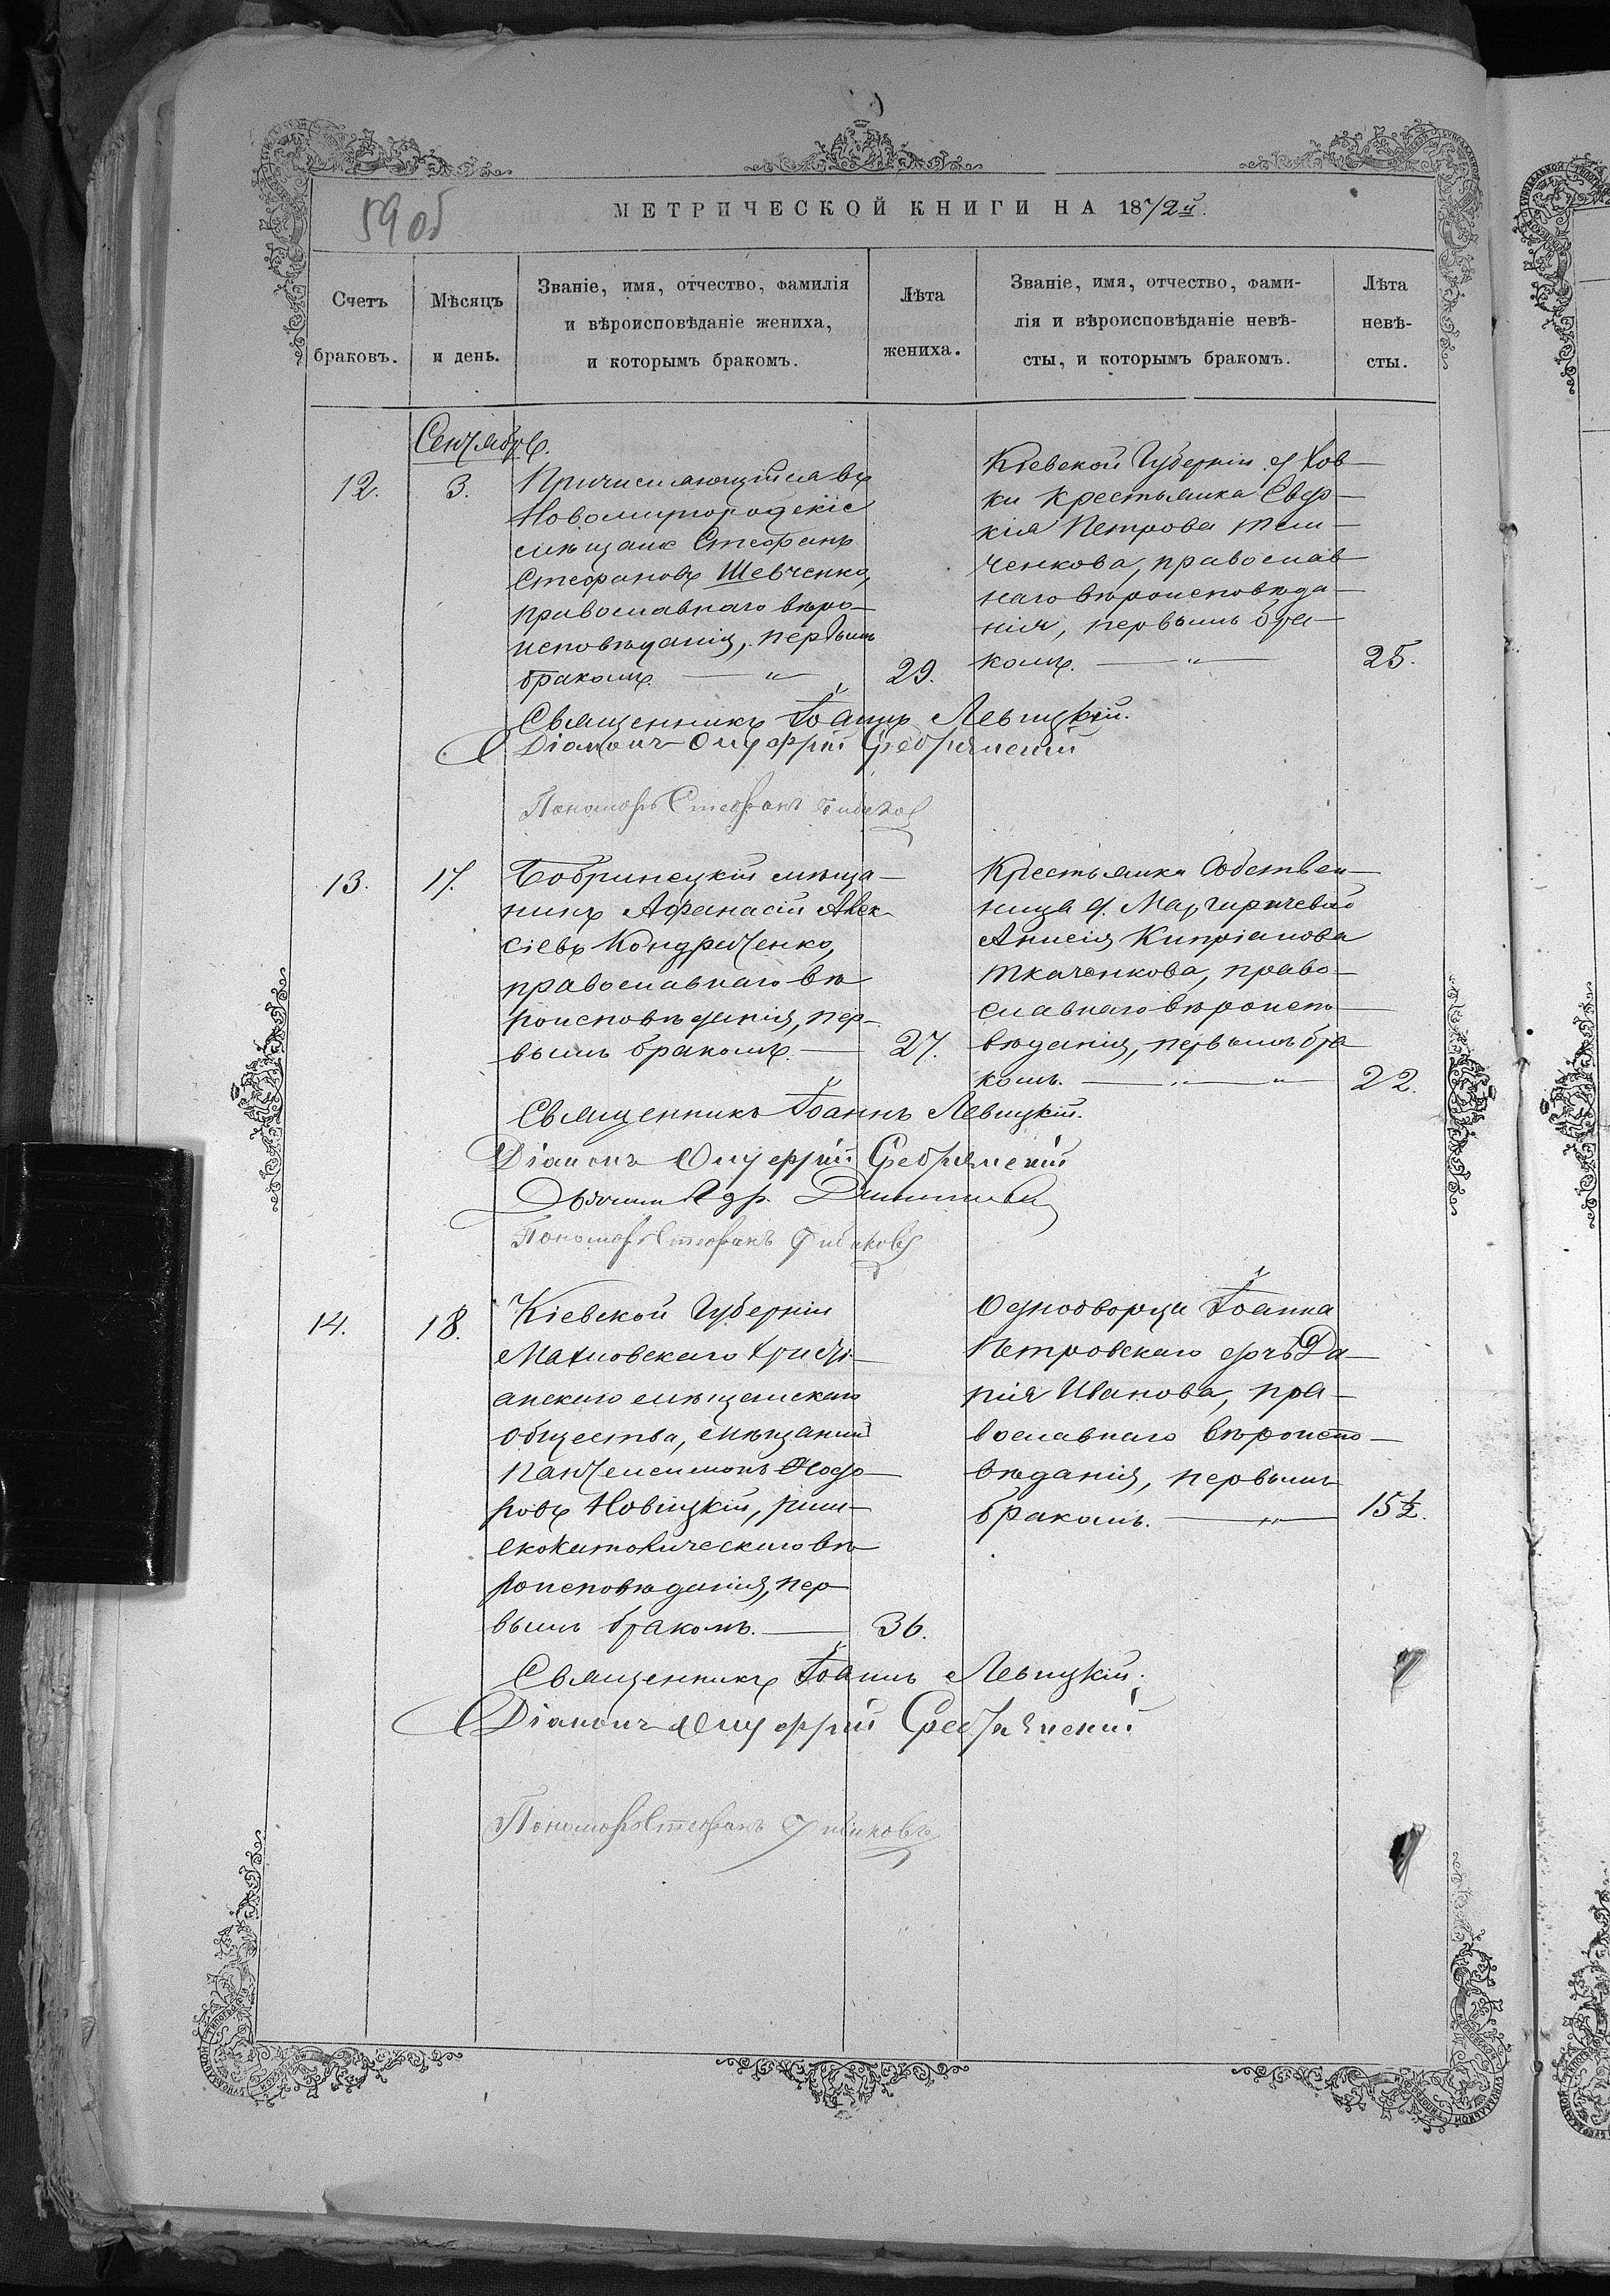 59 об
МЕТРИЧЕСКОЙ КНИГИ НА 1872й.
Счетъ браковъ.
Мѣсяцъ и день.
Званіе, имя, отчество, фамилія
и вѣроисповѣданіе жениха,
и которымъ бракомъ.
Лѣта
жениха.
Званіе, имя, отчество, фами-
лія и вѣроисповѣданіе невѣ-
сты, и которымъ бракомъ.
Лѣта
невѣ-
сты.
Сентябрь.
12.
3.
Причисляющійся въ
Новомиргородскіе
мѣщане Стефанъ
Стефановъ Шевченко,
православнаго вѣро-
исповѣданія, первымъ
бракомъ.
29.
Кіевской Губерніи
ки крестьянка
кія Петрова
ченкова, православ
наго вѣроисповѣда-
нія, первымъ бра-
комъ.
25.
Священникъ Іоаннъ Левицкій.
Діаконъ Онуфрій Гребинскій
Пономарь Стефанъ
13.
17.
Бобринецкій мѣща-
нинъ Афанасій Алек-
сіевъ Кондратенко,
православнаго вѣ
роисповѣданія, пер-
вымъ бракомъ.
27.
Крестьянка Собствен-
ница
Анисія Кипріанова
Ткаченкова, право-
славнаго вѣроиспо-
вѣданія, первымъ бра
комъ.
22.
Священникъ Іоаннъ Левицкій.
Діаконъ Онуфрій
Пономарь Стефанъ
14.
18.
Кіевской Губерніи
Махновскаго христі-
анскаго мѣщанскаго
общества, мѣщанинъ
Пантелеимонъ Ѳедо-
ровъ Новицкій, рим-
скокатолическаго вѣ
роисповѣданія, пер
вымъ бракомъ.
36.
Однодворца Іоанна
Петровскаго дочь Да-
рія Иванова, пра-
вославнаго вѣроиспо-
вѣданія, первымъ
бракомъ.
15½.
Священникъ Іоаннъ Левицкій.
Діаконъ Онуфрій
Пономарь Стефанъ